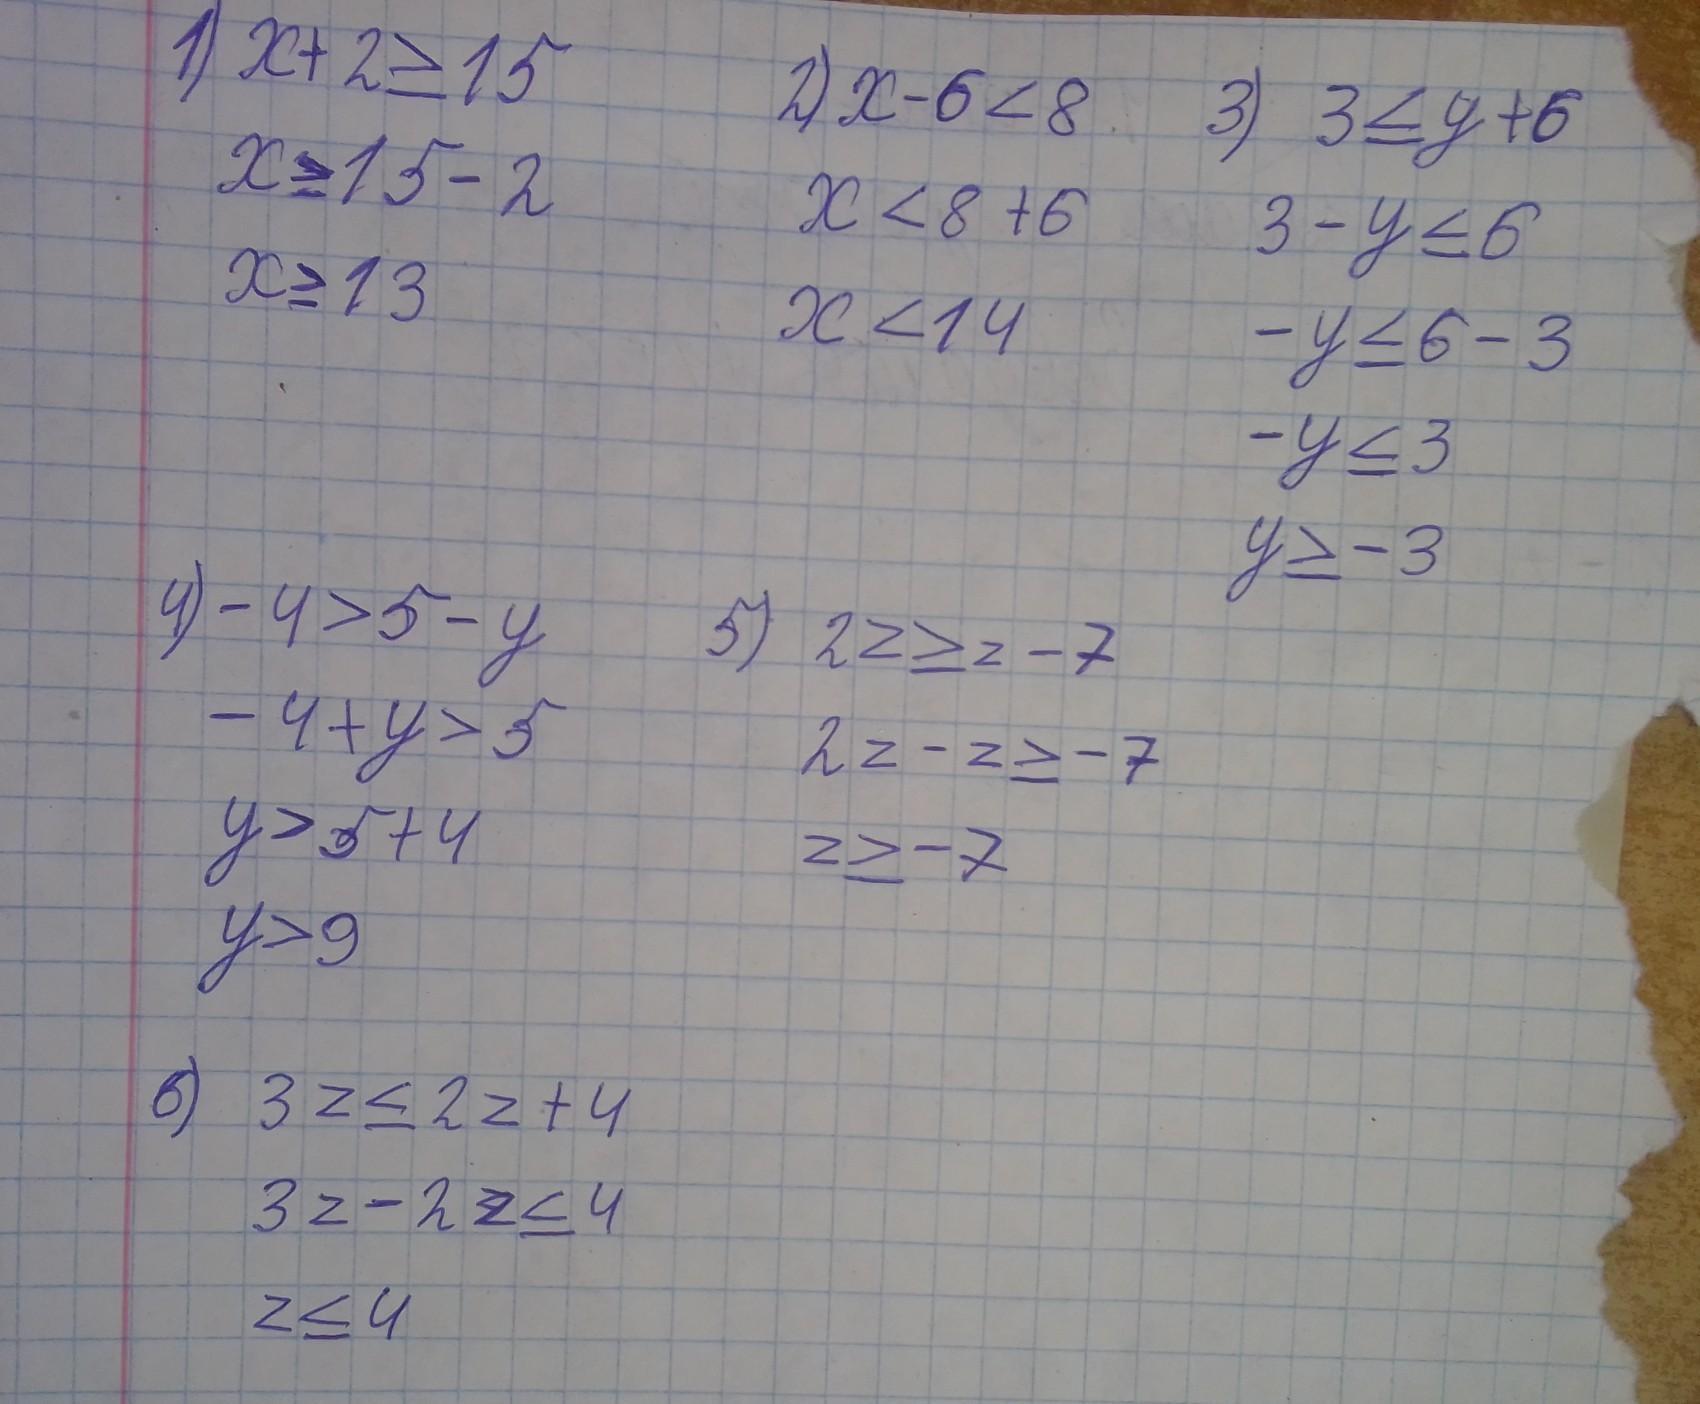 1) x+2≥15
x≥15-2
x≥13
2) x-6<8
x<8+6
x<14
3) 3≤y+6
3-y≤6
-y≤6-3
-y≤3
y≥-3
4) -4>5-y
-4+y>5
y>5+4
y>9
5) 2z≥z-7
2z-z≥-7
z≥-7
6) 3z≤2z+4
3z-2z≤4
z≤4